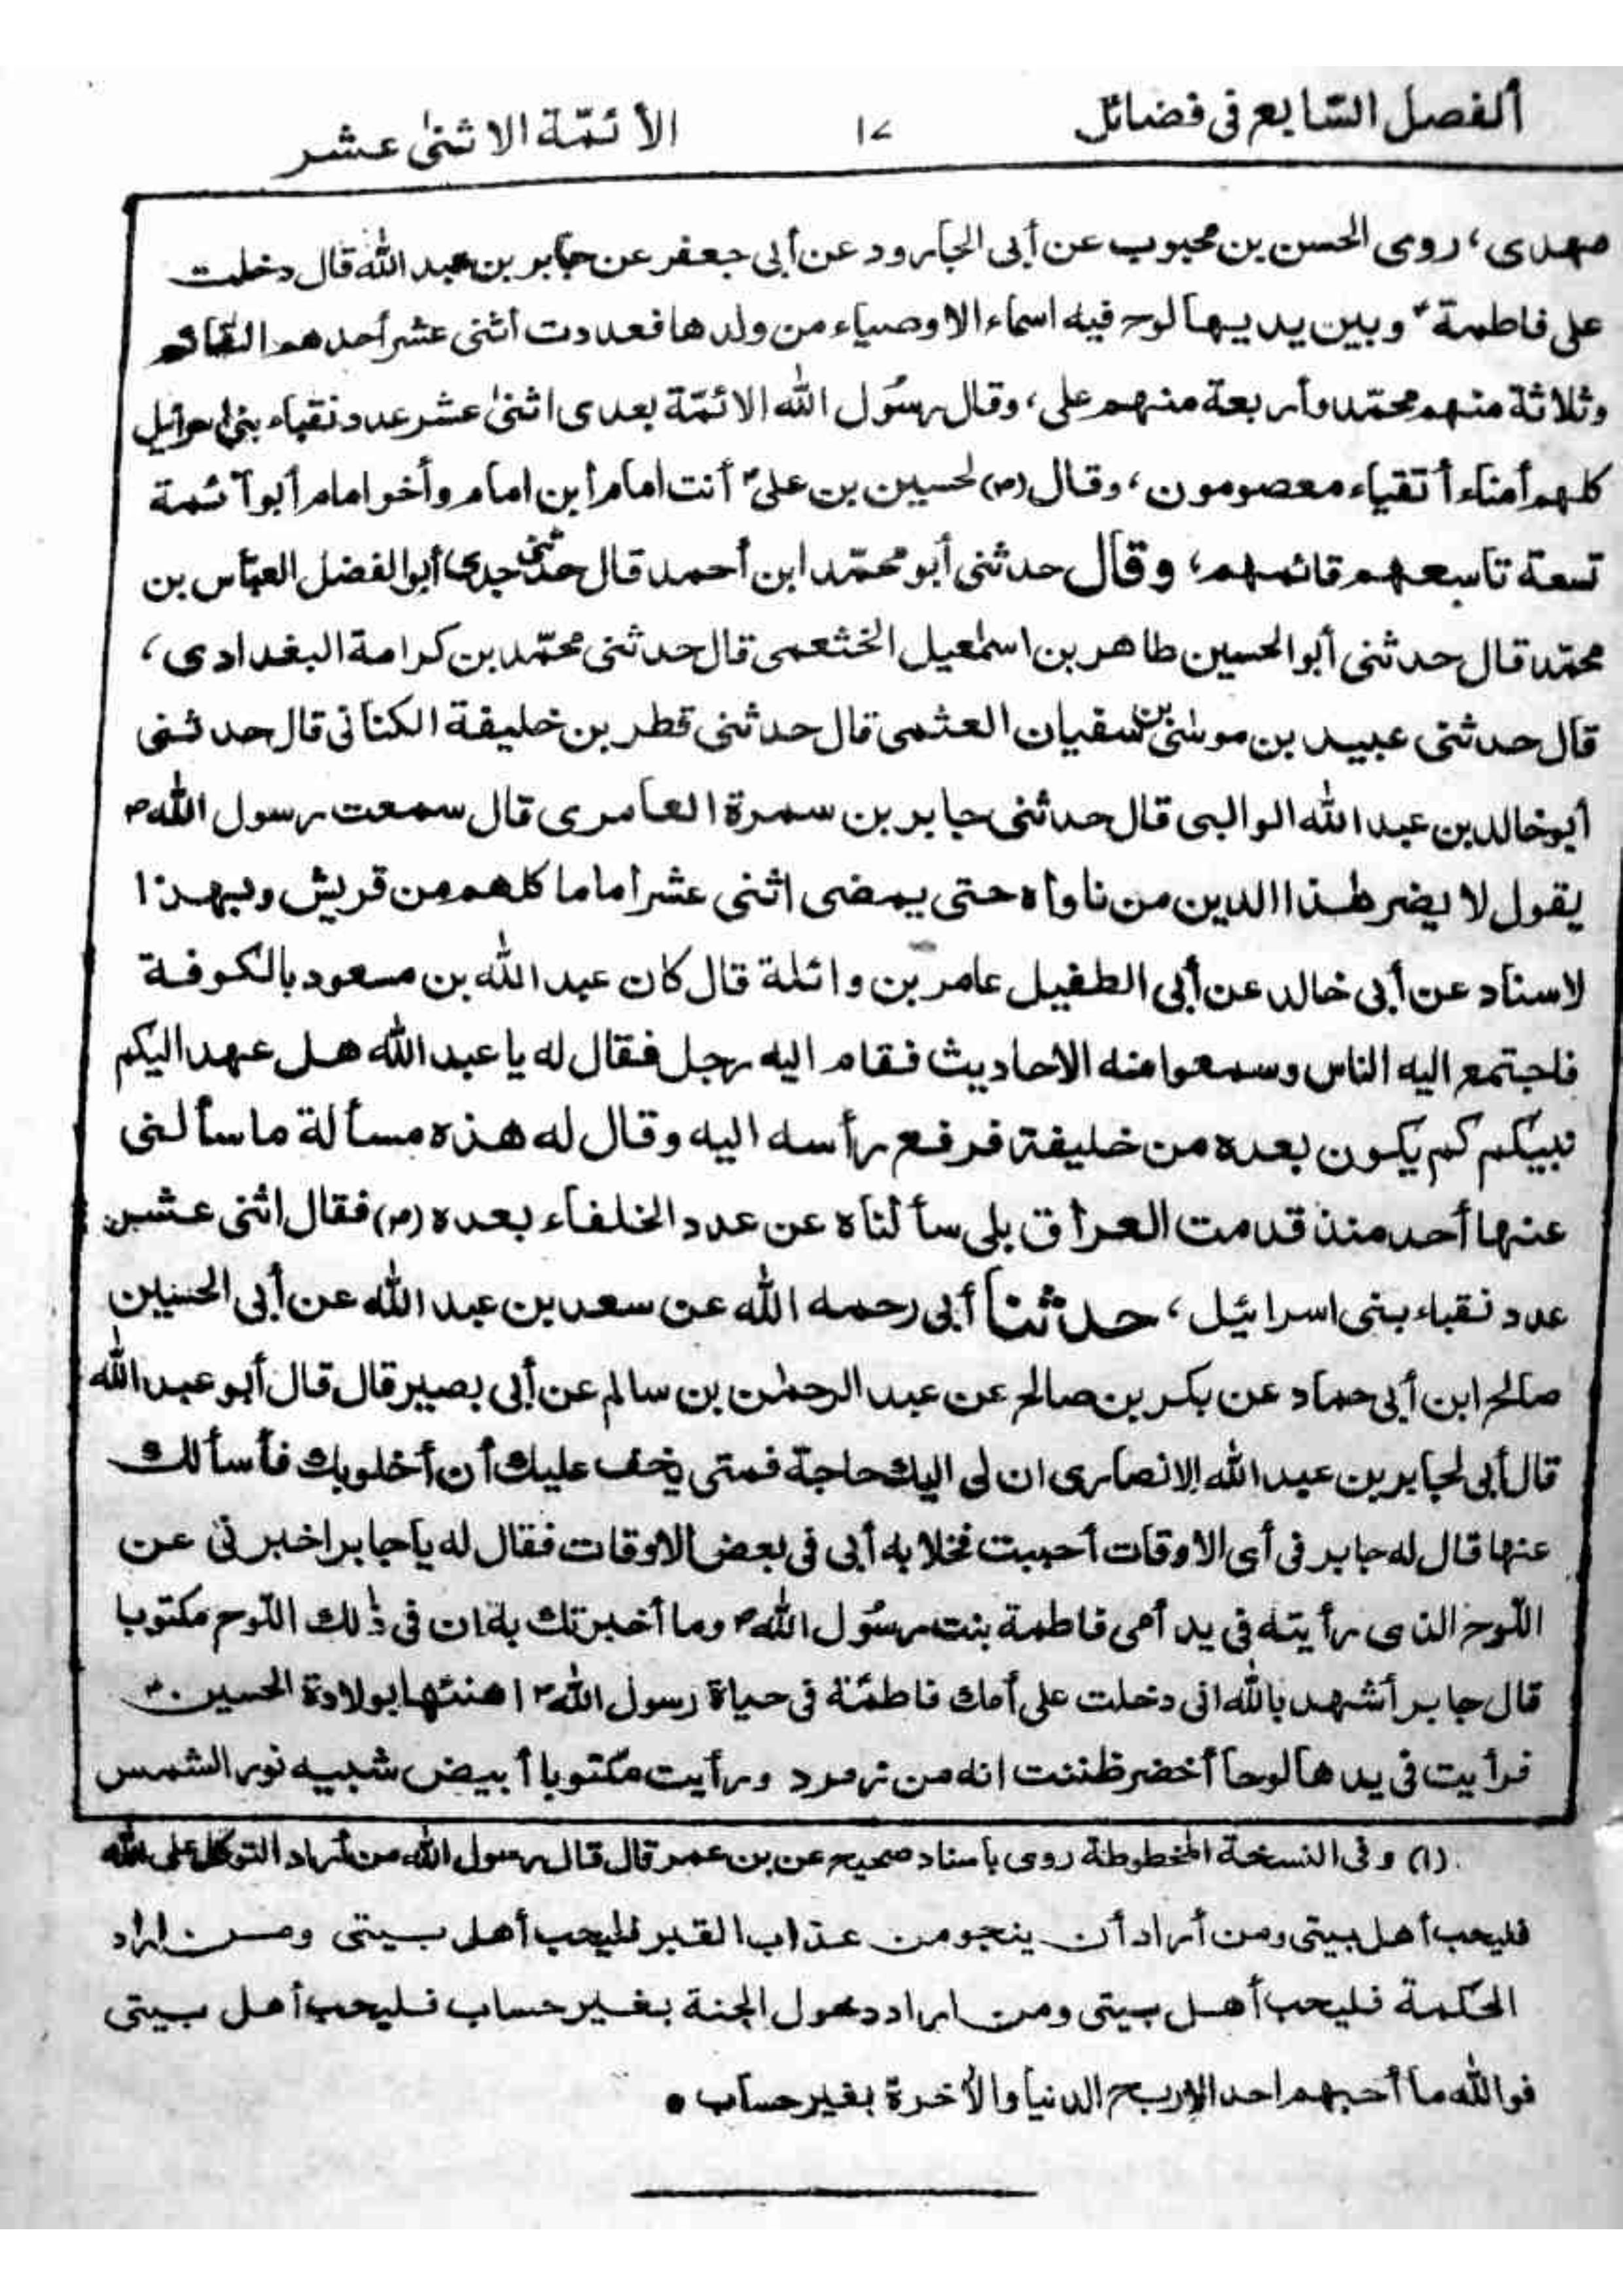 ألفصل السّابع فى فضائل ١٧ الأئمّة الاثنى عشر
مهدى، روى الحسن بن محبوب عن أبى الجارود عن أبى جعفر عن جابر بن عبد الله قال دخلت
على فاطمة ؑ وبين يديها لوح فيه اسماء الاوصياء من ولدها فعددت أثنى عشر أحدهم القائم
وثلاثة منهم محمّد وأربعة منهم على، وقال رسُول الله الائمّة بعدى اثنى عشر عدد نقباء بنى اسرائيل
كلهم أمناء أتقياء معصومون، وقال (ص) لحسين بن علىؑ أنت امام أبن امام وأخو امام أبو آئمة
تسعة تاسعهم قائمهم، وقال حدثنى أبو محمّد ابن أحمد قال حدثنى جدى أبو الفضل العبّاس بن
محمّد قال حدثنى أبو الحسين طاهر بن اسمٰعيل الخثعمى قال حدثنى محمّد بن كرامة البغدادى،
قال حدثنى عبيد بن موسٰى بن سفيان العثمى قال حدثنى قطر بن خليفة الكنانى قال حدثنى
أبو خالد بن عبد الله الوالبى قال حدثنى جابر بن سمرة العامرى قال سمعت رسول الله ص
يقول لا يضر هذا الدين من ناواه حتى يمضى اثنى عشر أماما كلهم من قريش وبهذا
لاسناد عن أبى خالد عن أبى الطفيل عامر بن وائلة قال كان عبد الله بن مسعود بالكوفة
فاجتمع اليه الناس وسمعوا منه الاحاديث فقام اليه رجل فقال له يا عبد الله هل عهد اليكم
نبيكم كم يكون بعده من خليفة فرفع رأسه اليه وقال له هذه مسألة ما سألنى
عنها أحد منذ قدمت العراق بلى سألناه عن عدد الخلفاء بعده (ص) فقال اثنى عشر
عدد نقباء بنى اسرائيل، حدثنا أبى رحمه الله عن سعد بن عبد الله عن أبى الحسين
صالح ابن أبى حماد عن بكر بن صالح عن عبد الرحمٰن بن سالم عن أبى بصير قال قال أبو عبد الله
قال أبى لجابر بن عبد الله الانصارى ان لى اليك حاجة فمتى يخف عليك أن أخلو بك فأسألك
عنها قال له جابر فى أى الاوقات أحببت فخلا به أبى فى بعض الاوقات فقال له يا جابر اخبرنى عن
اللّوح الذى رأيته فى يد أمى فاطمة بنت رسُول الله ص وما أخبرتك به ان فى ذٰلك اللّوح مكتوبا
قال جابر أشهد بالله انى دخلت على أمك فاطمة فى حياة رسول الله ص اهنئها بولادة الحسين ؑ
فرأيت فى يدها لوحا أخضر ظننت انه من زمرد ورأيت مكتوبا أبيض شبيه نور الشمس
(١) وفى النسخة المخطوطة روى بأسناد صحيح عن بن عمر قال قال رسول الله من أراد التوكل على الله
فليحب أهل بيتى ومن أراد أن ينجو من عذاب القبر فليحب أهل بيتى ومن اراد
الحكمة فليحب أهل بيتى ومن اراد دخول الجنة بغير حساب فليحب أهل بيتى
فوالله ما أحبهم احد الا ربح الدنيا والأخرة بغير حساب •